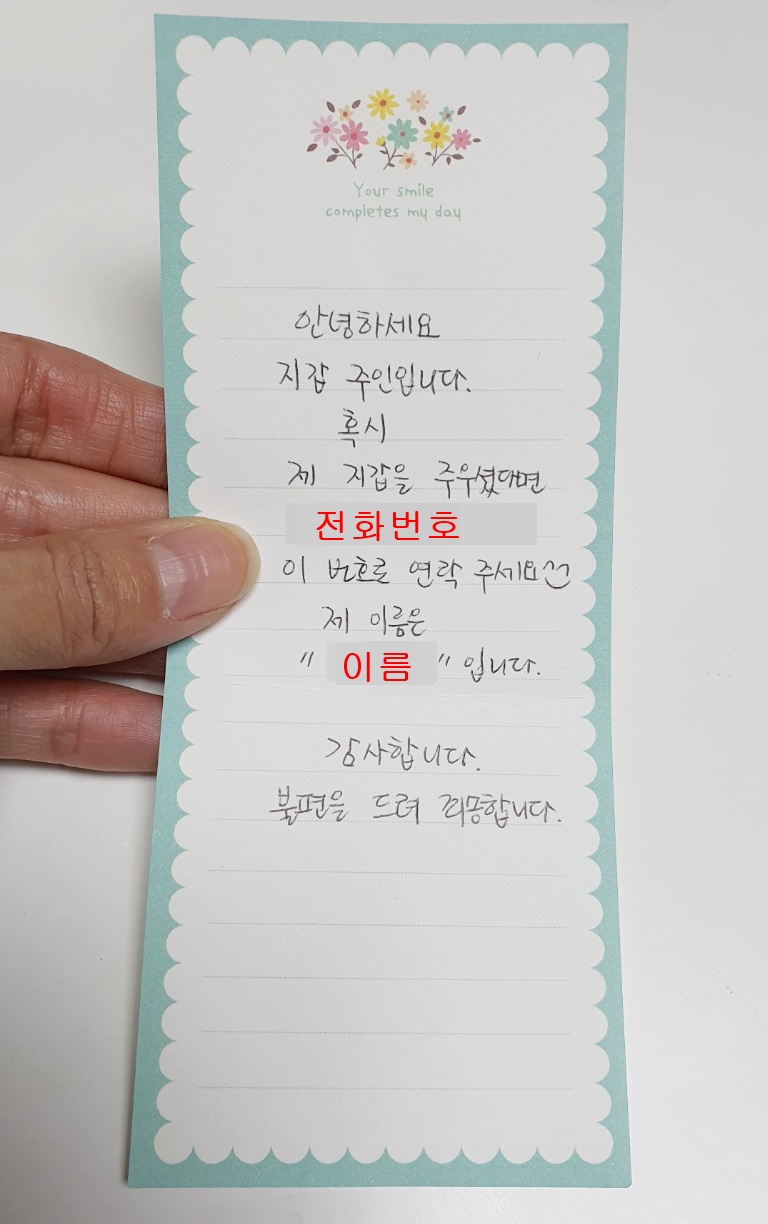 Your smile
completes my day
안녕하세요
지갑 주인입니다.
혹시
제 지갑을 주우셨다면
전화번호
이 번호로 연락 주세요^^
제 이름은
" 이름 " 입니다.
감사합니다.
불편을 드려 죄송합니다.